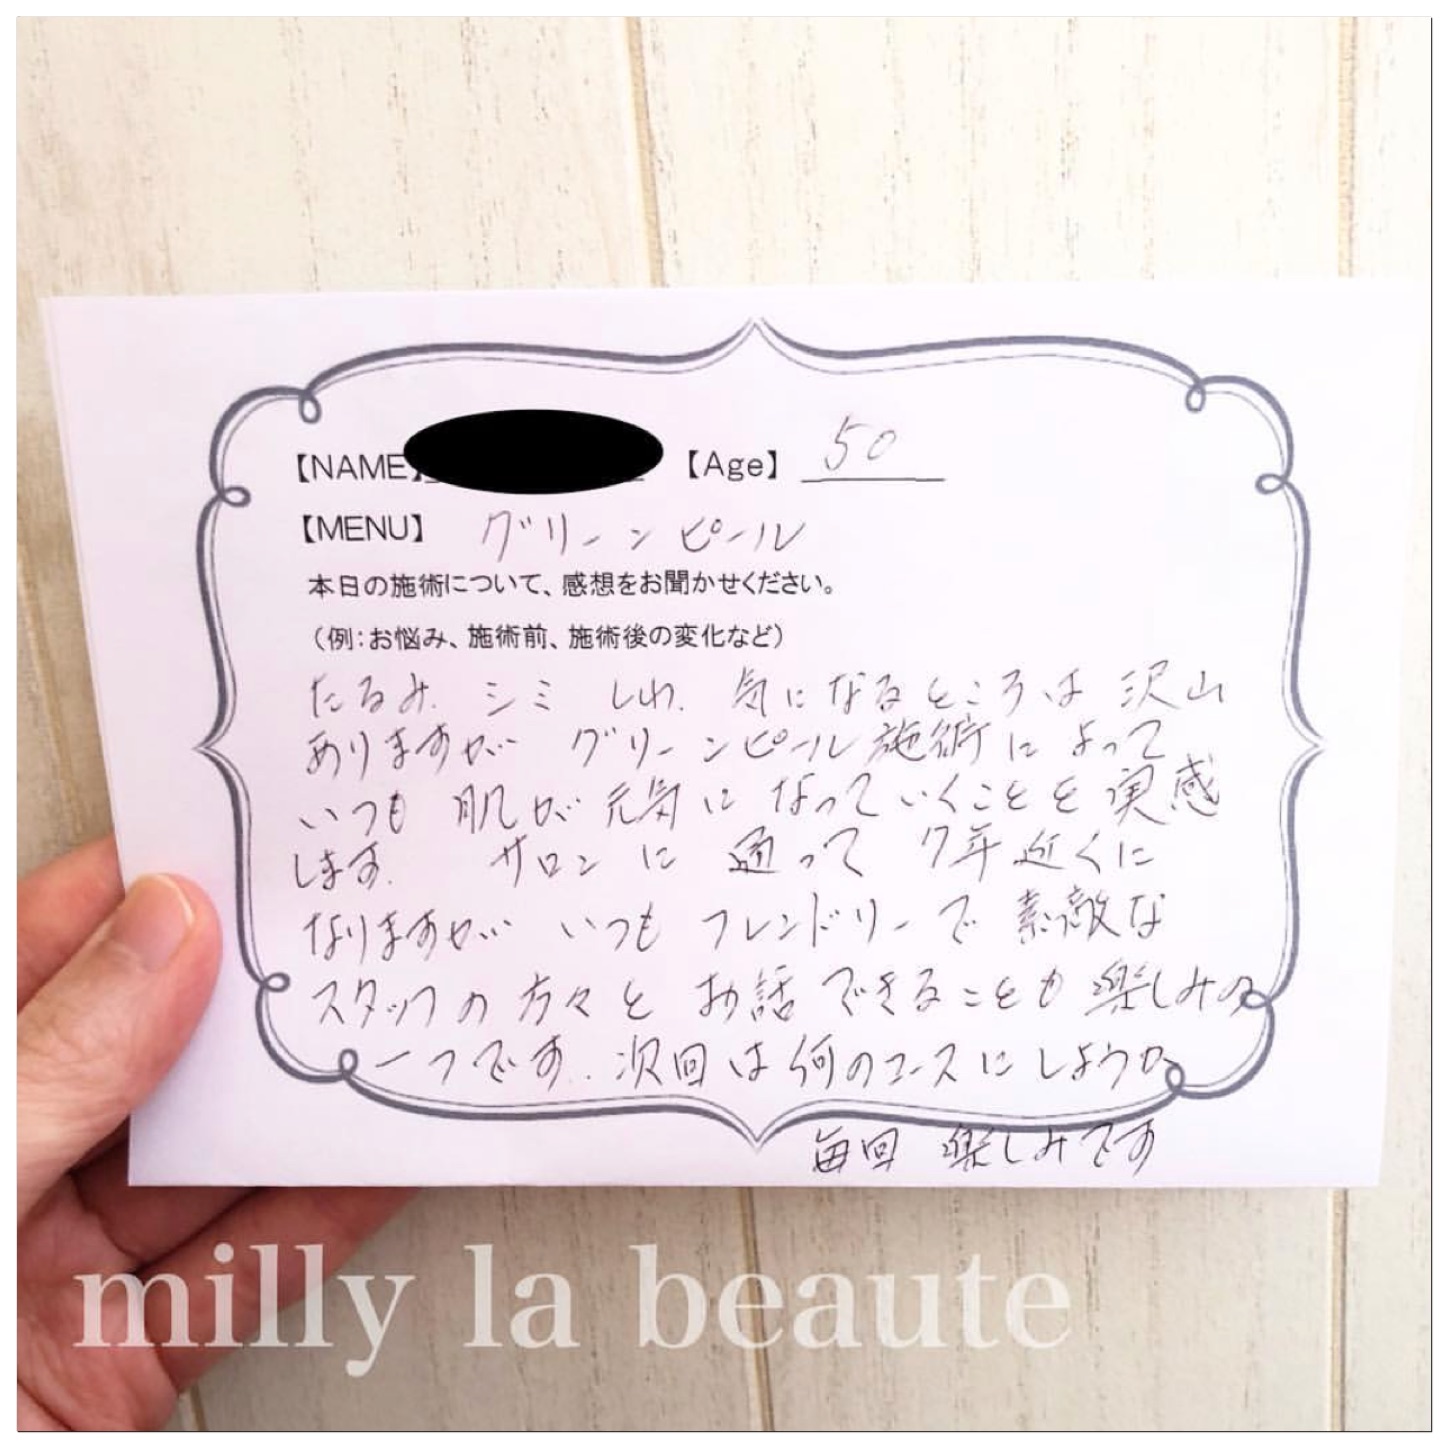 【NAME】 【Age】 50
【MENU】 グリーンピール
本日の施術について、感想をお聞かせください。
（例：お悩み、施術前、施術後の変化など）
たるみ. シミ しわ. 気になるところは 沢山
ありますが グリーンピール施術によって
いつも 肌が 元気に なっていくことを 実感
します. サロンに 通って 7年近くに
なりますが いつも フレンドリーで 素敵な
スタッフの 方々と お話できることも 楽しみの
一つです.. 次回は何のコースにしようか
毎回 楽しみです
milly la beaute